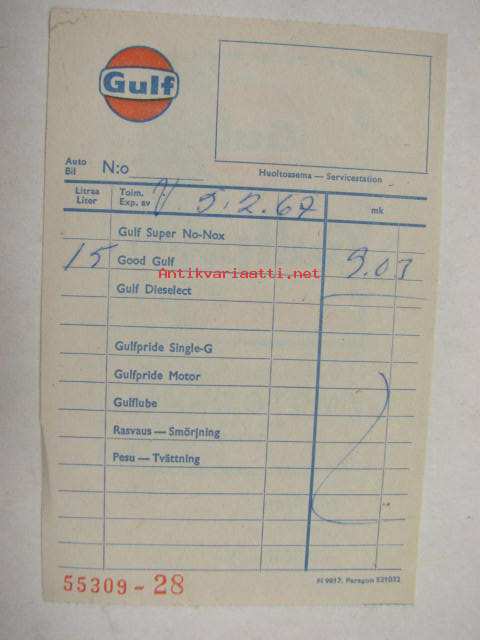 Gulf
Auto
Bil
N:o
Huoltoasema — Servicestation
Litraa
Liter
Toim.
Exp. av
5.2.67
mk
Gulf Super No-Nox
15 Good Gulf 9.03
Antikvariaatti.net
Gulf Dieselect
Gulfpride Single-G
Gulfpride Motor
Gulflube
Rasvaus — Smörjning
Pesu — Tvättning
55309 - 28